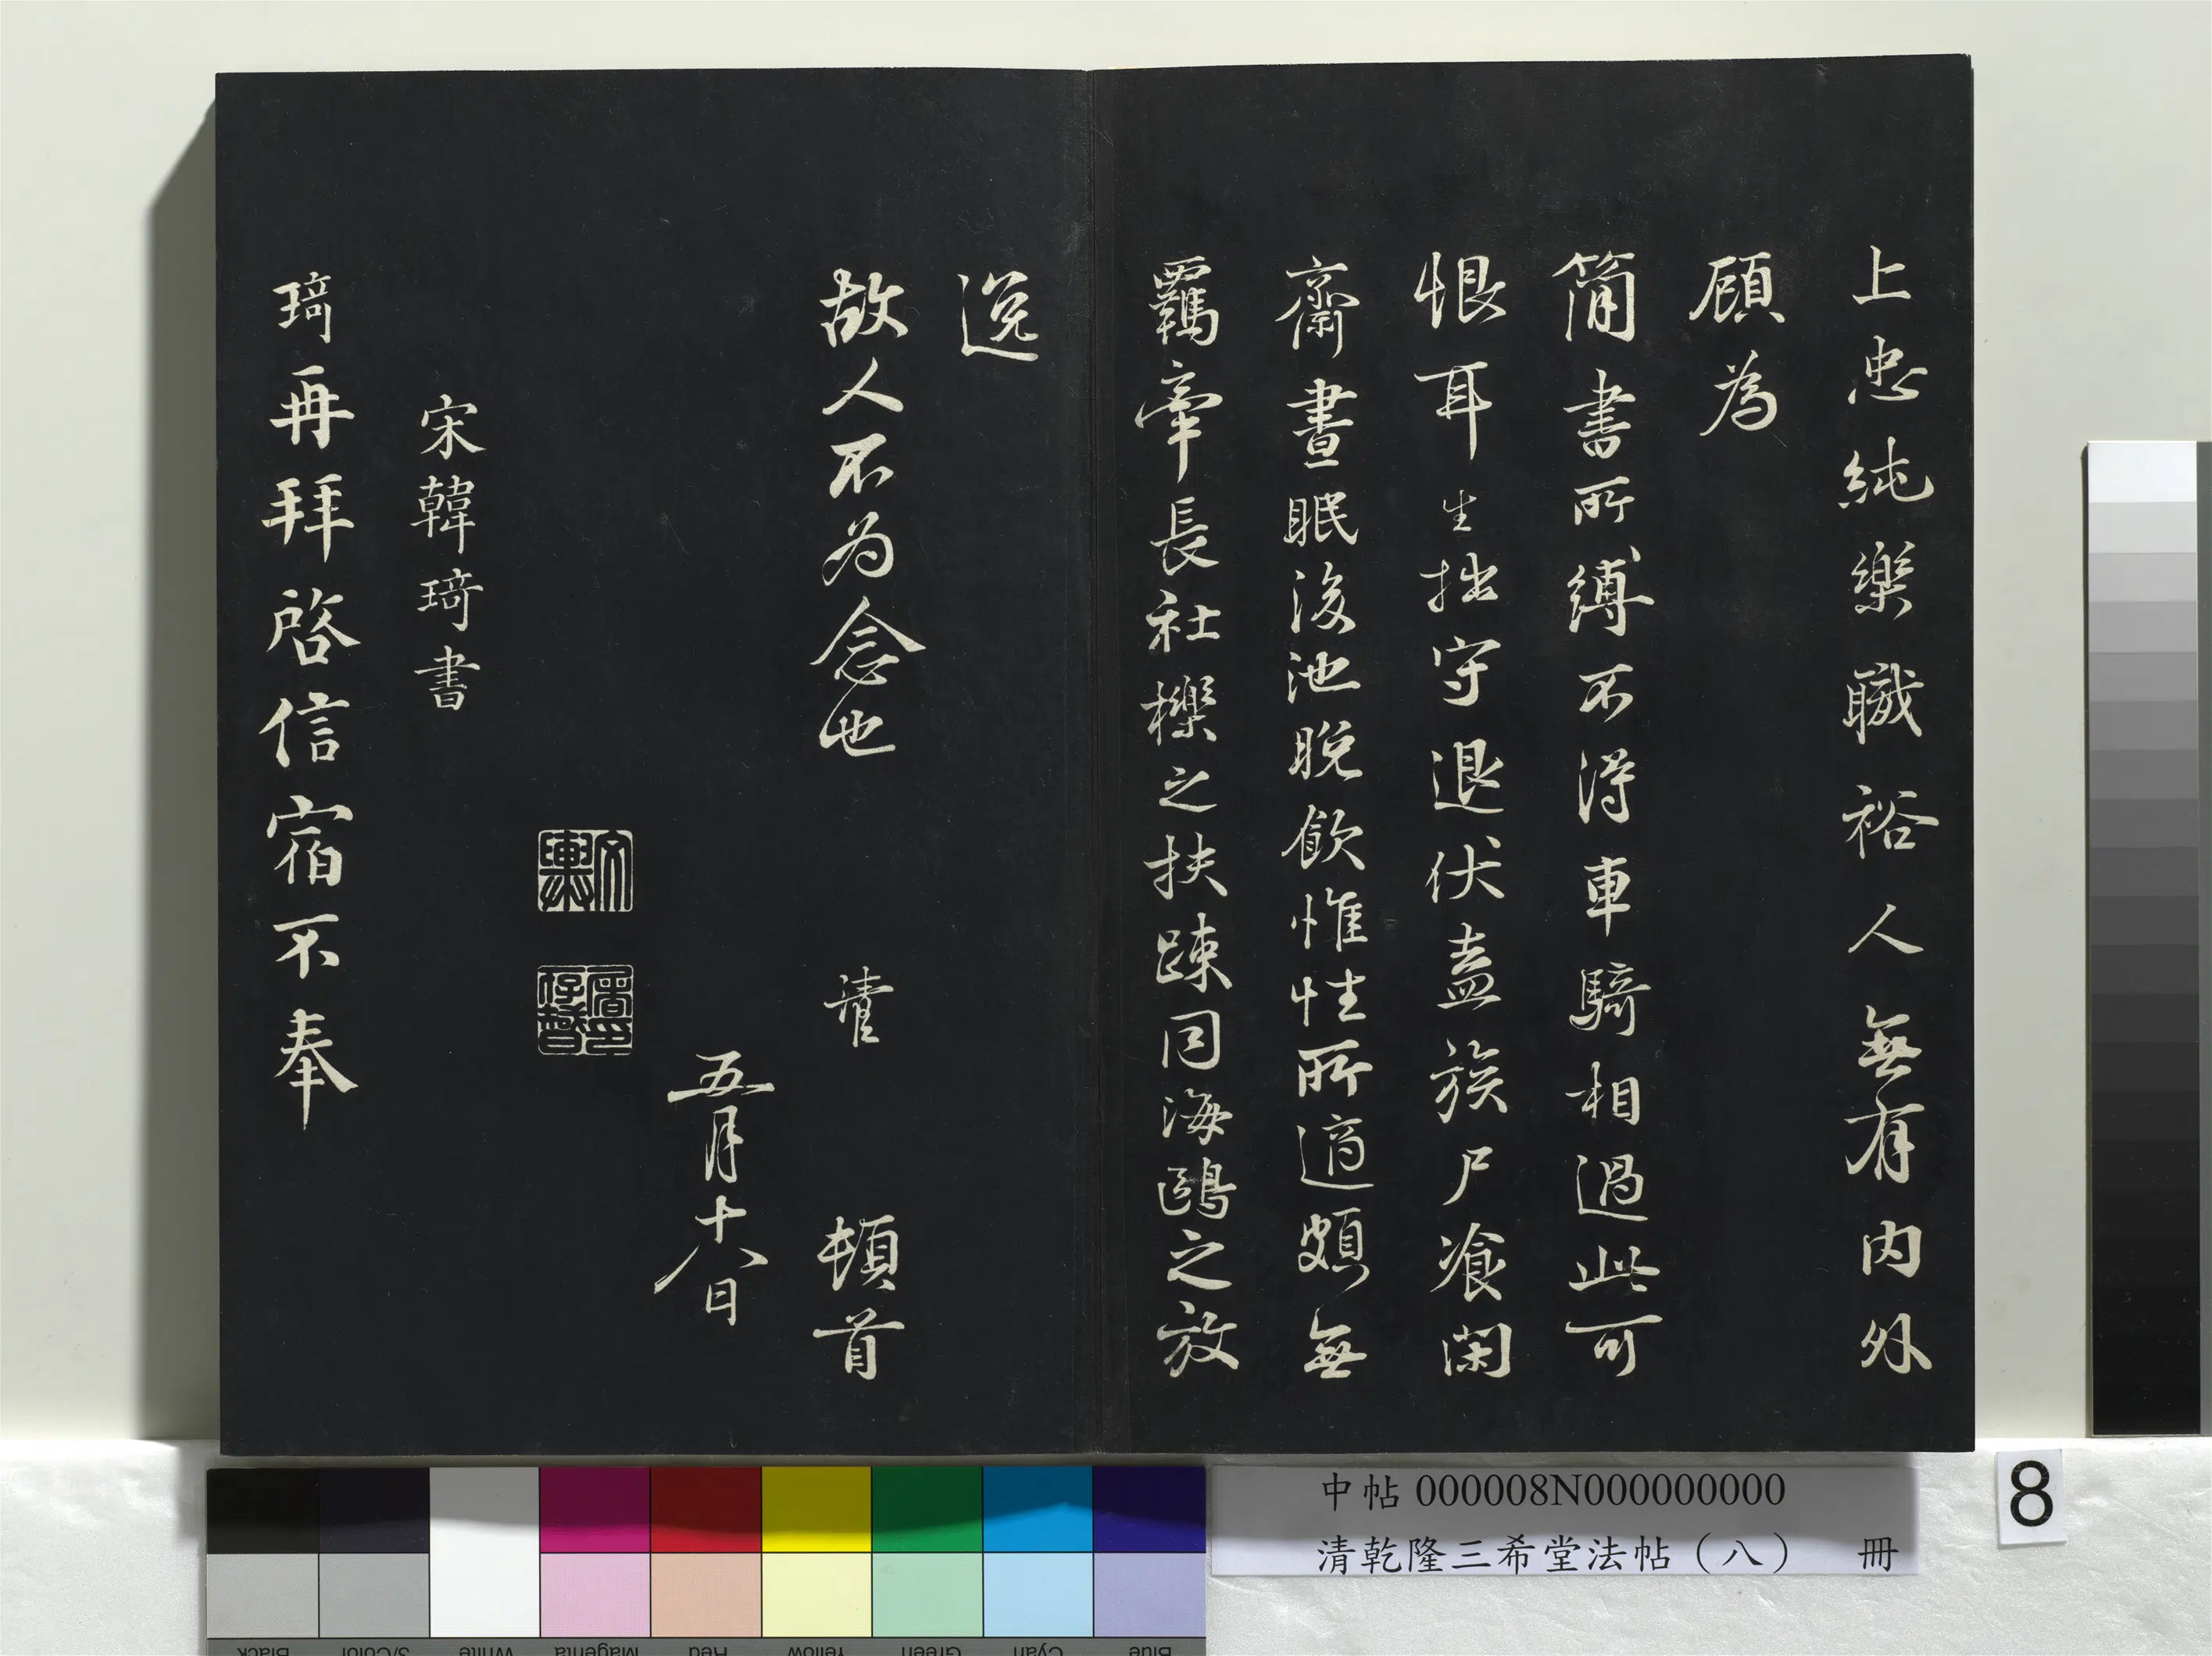 上忠純樂職裕人無有内外
顧為
簡書所縛不得車騎相過此可
恨耳生拙守退伏盍族尸飡閑
齋晝眠後池晚飲惟性所適頗無
羈牽長社櫟之扶踈同海鷗之放
逸
故人不為念也 清臣 頓首
五月十八日
宋韓琦書
琦再拜啓信宿不奉
中帖 000008N000000000
清乾隆三希堂法帖（八） 冊
8
Black 3/Color White Magenta Red Yellow Green Cyan Blue